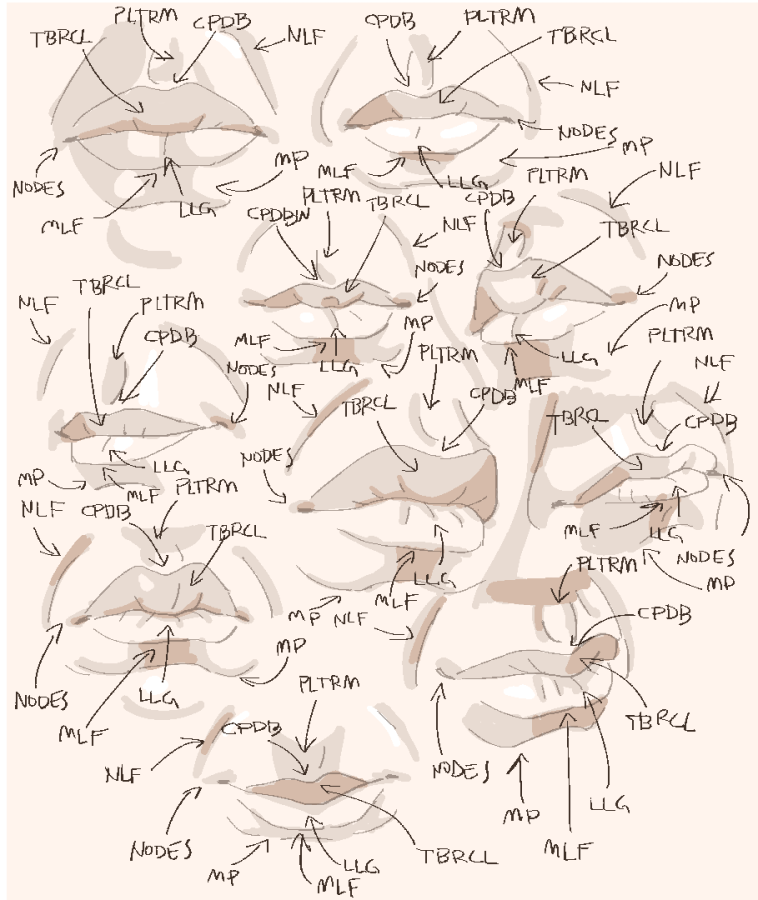 PLTRM
CPDB
TBRCL
NLF
NODES
MLF
LLG
MP
CPDB
PLTRM
TBRCL
NLF
NODES
MP
MLF
LLG
PLTRM
CPDBIN
TBRCL
NLF
NODES
MP
MLF
LLG
PLTRM
CPDB
NLF
TBRCL
NODES
MP
LLG
MLF
NLF
TBRCL
PLTRM
CPDB
NODES
LLG
MP
MLF
PLTRM
NLF
TBRCL
CPDB
NODES
LLG
MLF
MP
PLTRM
NLF
TBRCL
CPDB
MLF
LLG
NODES
MP
NLF
CPDB
PLTRM
TBRCL
NODES
MLF
LLG
MP
PLTRM
NLF
CPDB
TBRCL
NODES
MP
LLG
MLF
PLTRM
CPDB
NLF
NODES
TBRCL
LLG
MP
MLF